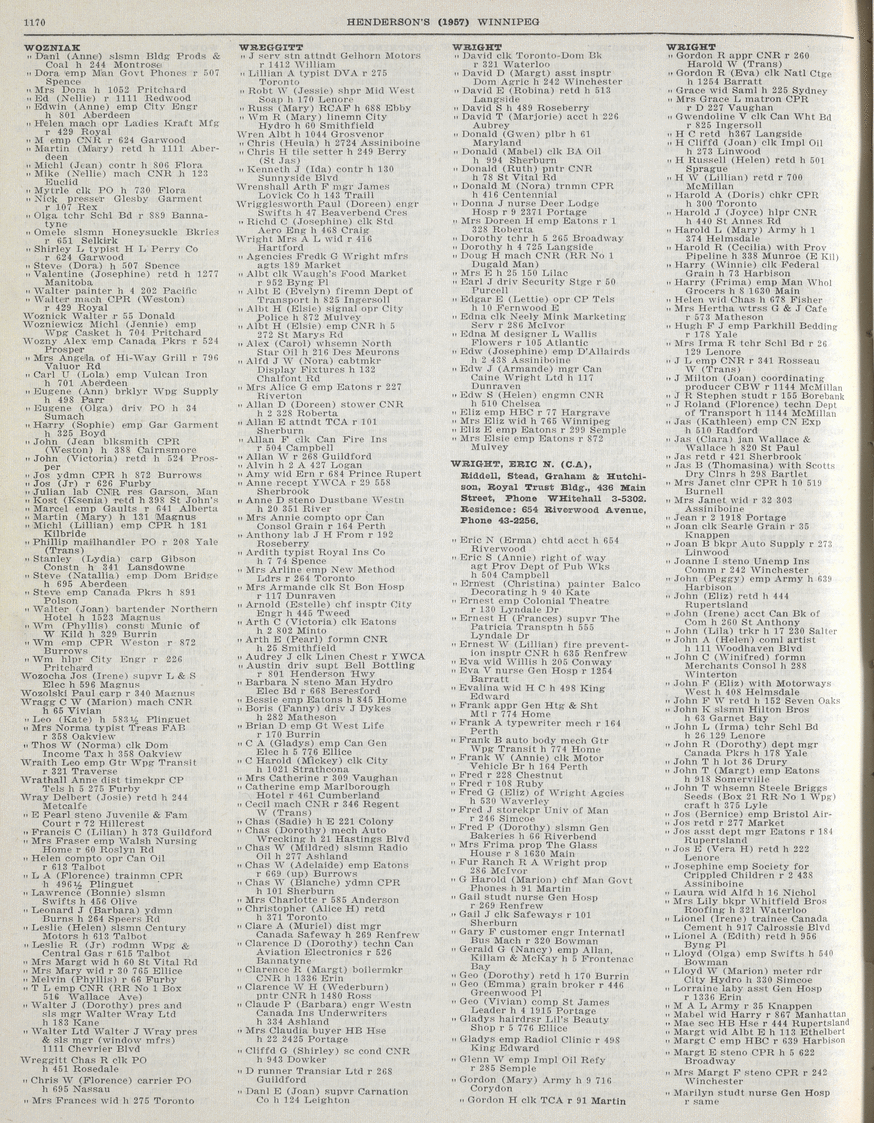 1170
HENDERSON'S (1957) WINNIPEG
WOZNIAK
" Danl (Anne) slsmn Bldg Prods &
Coal h 244 Montrose
" Dora emp Man Govt Phones r 507
Spence
" Mrs Dora h 1052 Pritchard
" Ed (Nellie) r 1111 Redwood
" Edwin (Anne) emp City Engr
h 801 Aberdeen
" Helen mach opr Ladies Kraft Mfg
r 429 Royal
" M emp CNR r 624 Garwood
" Martin (Mary) retd h 1111 Aber-
deen
" Michl (Jean) contr h 806 Flora
" Mike (Nellie) mach CNR h 123
Euclid
" Myrtle clk PO h 730 Flora
" Nick presser Glesby Garment
r 107 Rex
" Olga tchr Schl Bd r 889 Banna-
tyne
" Omele slsmn Honeysuckle Bkries
r 651 Selkirk
" Shirley L typist H L Perry Co
r 624 Garwood
" Steve (Dora) h 507 Spence
" Valentine (Josephine) retd h 1277
Manitoba
" Walter painter h 4 202 Pacific
" Walter mach CPR (Weston)
r 429 Royal
Woznick Walter r 55 Donald
Wozniewicz Michl (Jennie) emp
Wpg Casket h 704 Pritchard
Wozny Alex emp Canada Pkrs r 524
Prosper
" Mrs Angela of Hi-Way Grill r 796
Valuor Rd
" Carl U (Lola) emp Vulcan Iron
h 701 Aberdeen
" Eugene (Ann) brklyr Wpg Supply
h 498 Parr
" Eugene (Olga) driv PO h 34
Sumach
" Harry (Sophie) emp Gar Garment
h 325 Boyd
" John (Jean blksmith CPR
(Weston) h 388 Cairnsmore
" John (Victoria) retd h 524 Pros-
per
" Jos ydmn CPR h 872 Burrows
" Jos (Jr) r 626 Furby
" Julian lab CNR res Garson, Man
" Kost (Ksenia) retd h 398 St John's
" Marcel emp Gaults r 641 Alberta
" Martin (Mary) h 131 Magnus
" Michl (Lillian) emp CPR h 181
Kilbride
" Phillip mailhandler PO r 208 Yale
(Trans)
" Stanley (Lydia) carp Gibson
Constn h 341 Lansdowne
" Steve (Natallia) emp Dom Bridge
h 695 Aberdeen
" Steve emp Canada Pkrs h 891
Polson
" Walter (Joan) bartender Northern
Hotel h 1523 Magnus
" Wm (Phyllis) const Munic of
W Kild h 329 Burrin
" Wm emp CPR Weston r 872
Burrows
" Wm hlpr City Engr r 226
Pritchard
Wozocha Jos (Irene) supvr L & S
Elec h 596 Magnus
Wozolski Paul carp r 340 Magnus
Wragg C W (Marion) mach CNR
h 65 Vivian
" Leo (Kate) h 583½ Plinguet
" Mrs Norma typist Treas FAB
r 358 Oakview
" Thos W (Norma) clk Dom
Income Tax h 358 Oakview
Wraith Leo emp Gtr Wpg Transit
r 321 Traverse
Wrathall Anne dist timekpr CP
Tels h 5 275 Furby
Wray Delbert (Josie) retd h 244
Metcalfe
" E Pearl steno Juvenile & Fam
Court r 72 Hillcrest
" Francis C (Lilian) h 373 Guildford
" Mrs Fraser emp Walsh Nursing
Home r 60 Roslyn Rd
" Helen compto opr Can Oil
r 613 Talbot
" L A (Florence) trainmn CPR
h 496½ Plinguet
" Lawrence (Bonnie) slsmn
Swifts h 456 Olive
" Leonard J (Barbara) ydmn
Burns h 264 Speers Rd
" Leslie (Helen) slsmn Century
Motors h 613 Talbot
" Leslie R (Jr) rodmn Wpg &
Central Gas r 615 Talbot
" Mrs Margt wid h 60 St Vital Rd
" Mrs Mary wid r 30 765 Ellice
" Melvin (Phyllis) r 66 Furby
" T L emp CNR (RR No 1 Box
516 Wallace Ave)
" Walter J (Dorothy) pres and
sls mgr Walter Wray Ltd
h 183 Kane
" Walter Ltd Walter J Wray pres
& sls mgr (window mfrs)
1111 Chevrier Blvd
Wreggitt Chas R clk PO
h 451 Rosedale
" Chris W (Florence) carrier PO
h 695 Nassau
" Mrs Frances wid h 275 Toronto
WREGGITT
" J serv stn attndt Gelhorn Motors
r 1412 William
" Lillian A typist DVA r 275
Toronto
" Robt W (Jessie) shpr Mid West
Soap h 170 Lenore
" Russ (Mary) RCAF h 688 Ebby
" Wm R (Mary) linemn City
Hydro h 60 Smithfield
Wren Albt h 1044 Grosvenor
" Chris (Heula) h 2724 Assiniboine
" Chris H tile setter h 249 Berry
(St Jas)
" Kenneth J (Ida) contr h 130
Sunnyside Blvd
Wrenshall Arth F mgr James
Lovick Co h 143 Traill
Wrigglesworth Paul (Doreen) engr
Swifts h 47 Beaverbend Cres
" Richd C (Josephine) clk Std
Aero Eng h 468 Craig
Wright Mrs A L wid r 416
Hartford
" Agencies Fredk G Wright mfrs
agts 189 Market
" Albt clk Waugh's Food Market
r 952 Byng Pl
" Albt E (Evelyn) firemn Dept of
Transport h 825 Ingersoll
" Albt H (Elsie) signal opr City
Police h 872 Mulvey
" Albt H (Elsie) emp CNR h 5
272 St Marys Rd
" Alex (Carol) whsemn North
Star Oil h 216 Des Meurons
" Alfd J W (Nora) cabtmkr
Display Fixtures h 132
Chalfont Rd
" Mrs Alice G emp Eatons r 227
Riverton
" Allan D (Doreen) stower CNR
h 2 328 Roberta
" Allan E attndt TCA r 101
Sherburn
" Allan F clk Can Fire Ins
r 504 Campbell
" Allan W r 268 Guildford
" Alvin h 2 A 427 Logan
" Amy wid Ern r 684 Prince Rupert
" Anne recept YWCA r 29 558
Sherbrook
" Anne D steno Dustbane Westn
h 20 351 River
" Mrs Annie compto opr Can
Consol Grain r 164 Perth
" Anthony lab J H From r 192
Roseberry
" Ardith typist Royal Ins Co
h 7 74 Spence
" Mrs Arline emp New Method
Ldrs r 264 Toronto
" Mrs Armande clk St Bon Hosp
r 117 Dunraven
" Arnold (Estelle) chf insptr City
Engr h 445 Tweed
" Arth C (Victoria) clk Eatons
h 2 802 Minto
" Arth E (Pearl) formn CNR
h 25 Smithfield
" Audrey J clk Linen Chest r YWCA
" Austin driv supt Bell Bottling
r 801 Henderson Hwy
" Barbara N steno Man Hydro
Elec Bd r 668 Beresford
" Bessie emp Eatons h 845 Home
" Boris (Fanny) driv J Dykes
h 282 Matheson
" Brian D emp Gt West Life
r 170 Burrin
" C A (Gladys) emp Can Gen
Elec h 5 776 Ellice
" C Harold (Mickey) clk City
h 1021 Strathcona
" Mrs Catherine r 309 Vaughan
" Catherine emp Marlborough
Hotel r 461 Cumberland
" Cecil mach CNR r 346 Regent
W (Trans)
" Chas (Sadie) h E 221 Colony
" Chas (Dorothy) mech Auto
Wrecking h 21 Hastings Blvd
" Chas W (Mildred) slsmn Radio
Oil h 277 Ashland
" Chas W (Adelaide) emp Eatons
r 669 (up) Burrows
" Chas W (Blanche) ydmn CPR
h 101 Sherburn
" Mrs Charlotte r 585 Anderson
" Christopher (Alice H) retd
h 371 Toronto
" Clare A (Muriel) dist mgr
Canada Safeway h 269 Renfrew
" Clarence D (Dorothy) techn Can
Aviation Electronics r 526
Bannatyne
" Clarence R (Margt) boilermkr
CNR h 1336 Erin
" Clarence W H (Wederburn)
pntr CNR h 1480 Ross
" Claude P (Barbara) engr Westn
Canada Ins Underwriters
h 334 Ashland
" Mrs Claudia buyer HB Hse
h 22 2425 Portage
" Cliffd G (Shirley) sc cond CNR
h 943 Dowker
" D runner Transiar Ltd r 268
Guildford
" Danl E (Joan) supvr Carnation
Co h 124 Leighton
WRIGHT
" David clk Toronto-Dom Bk
r 321 Waterloo
" David D (Margt) asst insptr
Dom Agric h 242 Winchester
" David E (Robina) retd h 513
Langside
" David S h 489 Roseberry
" David T (Marjorie) acct h 226
Aubrey
" Donald (Gwen) plbr h 61
Maryland
" Donald (Mabel) clk BA Oil
h 994 Sherburn
" Donald (Ruth) pntr CNR
h 78 St Vital Rd
" Donald M (Nora) trnmn CPR
h 416 Centennial
" Donna J nurse Deer Lodge
Hosp r 9 2371 Portage
" Mrs Doreen H emp Eatons r 1
328 Roberta
" Dorothy tchr h 5 265 Broadway
" Dorothy h 4 725 Langside
" Doug H mach CNR (RR No 1
Dugald Man)
" Mrs E h 25 150 Lilac
" Earl J driv Security Stge r 50
Purcell
" Edgar E (Lettie) opr CP Tels
h 10 Fernwood E
" Edna clk Neely Mink Marketing
Serv r 286 McIvor
" Edna M designer L Wallis
Flowers r 105 Atlantic
" Edw (Josephine) emp D'Allairds
h 2 438 Assiniboine
" Edw J (Armande) mgr Can
Caine Wright Ltd h 117
Dunraven
" Edw S (Helen) engmn CNR
h 510 Chelsea
" Eliz emp HBC r 77 Hargrave
" Mrs Eliz wid h 765 Winnipeg
" Eliz E emp Eatons r 299 Semple
" Mrs Elsie emp Eatons r 872
Mulvey
WRIGHT, ERIC N. (C.A),
Riddell, Stead, Graham & Hutchi-
son, Royal Trust Bldg., 436 Main
Street, Phone WHitehall 3-5302.
Residence: 654 Riverwood Avenue,
Phone 43-2256.
" Eric N (Erma) chtd acct h 654
Riverwood
" Eric S (Annie) right of way
agt Prov Dept of Pub Wks
h 504 Campbell
" Ernest (Christina) painter Balco
Decorating h 9 40 Kate
" Ernest emp Colonial Theatre
r 130 Lyndale Dr
" Ernest H (Frances) supvr The
Patricia Transptn h 555
Lyndale Dr
" Ernest W (Lillian) fire prevent-
ion insptr CNR h 635 Renfrew
" Eva wid Willis h 205 Conway
" Eva V nurse Gen Hosp r 1254
Barratt
" Evalina wid H C h 498 King
Edward
" Frank appr Gen Htg & Sht
Mtl r 774 Home
" Frank A typewriter mech r 164
Perth
" Frank B auto body mech Gtr
Wpg Transit h 774 Home
" Frank W (Annie) clk Motor
Vehicle Br h 164 Perth
" Fred r 228 Chestnut
" Fred r 108 Ruby
" Fred G (Eliz) of Wright Agcies
h 530 Waverley
" Fred J storekpr Univ of Man
r 246 Simcoe
" Fred P (Dorothy) slsmn Gen
Bakeries h 66 Riverbend
" Mrs Frima prop The Glass
House r 8 1630 Main
" Fur Ranch R A Wright prop
286 McIvor
" G Harold (Marion) chf Man Govt
Phones h 91 Martin
" Gail studt nurse Gen Hosp
r 269 Renfrew
" Gail J clk Safeways r 101
Sherburn
" Gary F customer engr Internatl
Bus Mach r 320 Bowman
" Gerald G (Nancy) emp Allan,
Killam & McKay h 5 Frontenac
Bay
" Geo (Dorothy) retd h 170 Burrin
" Geo (Emma) grain broker r 446
Greenwood Pl
" Geo (Vivian) comp St James
Leader h 4 1915 Portage
" Gladys hairdrsr Lil's Beauty
Shop r 5 776 Ellice
" Gladys emp Radiol Clinic r 498
King Edward
" Glenn W emp Imp Oil Refy
r 285 Semple
" Gordon (Mary) Army h 9 716
Corydon
" Gordon H clk TCA r 91 Martin
WRIGHT
" Gordon R appr CNR r 260
Harold W (Trans)
" Gordon R (Eva) clk Natl Ctge
h 1254 Barratt
" Grace wid Saml h 225 Sydney
" Mrs Grace L matron CPR
r D 227 Vaughan
" Gwendoline V clk Can Wht Bd
r 825 Ingersoll
" H C retd h367 Langside
" H Cliffd (Joan) clk Impl Oil
h 273 Linwood
" H Russell (Helen) retd h 501
Sprague
" H W (Lillian) retd r 700
McMillan
" Harold A (Doris) chkr CPR
h 300 Toronto
" Harold J (Joyce) hlpr CNR
h 440 St Annes Rd
" Harold L (Mary) Army h 1
374 Helmsdale
" Harold R (Cecilia) with Prov
Pipeline h 338 Munroe (E Kil)
" Harry (Winnie) clk Federal
Grain h 73 Harbison
" Harry (Frima) emp Man Whol
Grocers h 8 1630 Main
" Helen wid Chas h 678 Fisher
" Mrs Hertha wtrss G & J Cafe
r 573 Matheson
" Hugh F J emp Parkhill Bedding
r 178 Yale
" Mrs Irma R tchr Schl Bd r 26
129 Lenore
" J L emp CNR r 341 Rosseau
W (Trans)
" J Milton (Joan) coordinating
producer CBW r 1144 McMillan
" J R Stephen studt r 155 Borebank
" J Roland (Florence) techn Dept
of Transport h 1144 McMillan
" Jas (Kathleen) emp CN Exp
h 510 Radford
" Jas (Clara) jan Wallace &
Wallace h 820 St Paul
" Jas retd r 421 Sherbrook
" Jas B (Thomasina) with Scotts
Dry Clnrs h 298 Bartlet
" Mrs Janet clnr CPR h 10 519
Burnell
" Mrs Janet wid r 32 303
Assiniboine
" Jean r 2 1918 Portage
" Joan clk Searle Grain r 35
Knappen
" Joan B bkpr Auto Supply r 273
Linwood
" Joanne I steno Unemp Ins
Comm r 242 Winchester
" John (Peggy) emp Army h 639
Harbison
" John (Eliz) retd h 444
Rupertsland
" John (Irene) acct Can Bk of
Com h 260 St Anthony
" John (Lila) trkr h 17 230 Salter
" John A (Helen) coml artist
h 111 Woodhaven Blvd
" John C (Winifred) formn
Merchants Consol h 288
Winterton
" John F (Eliz) with Motorways
West h 408 Helmsdale
" John F W retd h 152 Seven Oaks
" John K slsmn Hilton Bros
h 63 Garnet Bay
" John L (Irma) tchr Schl Bd
h 26 129 Lenore
" John R (Dorothy) dept mgr
Canada Pkrs h 178 Yale
" John T h lot 36 Drury
" John T (Margt) emp Eatons
h 918 Somerville
" John T whsemn Steele Briggs
Seeds (Box 21 RR No 1 Wpg)
craft h 375 Lyle
" Jos (Bernice) emp Bristol Air-
" Jos retd r 277 Market
" Jos asst dept mgr Eatons r 184
Rupertsland
" Jos E (Vera H) retd h 222
Lenore
" Josephine emp Society for
Crippled Children r 2 438
Assiniboine
" Laura wid Alfd h 16 Nichol
" Mrs Lily bkpr Whitfield Bros
Roofing h 321 Waterloo
" Lionel (Irene) trainee Canada
Cement h 917 Calrossie Blvd
" Lionel A (Edith) retd h 956
Byng Pl
" Lloyd (Olga) emp Swifts h 540
Bowman
" Lloyd W (Marion) meter rdr
City Hydro h 320 Simcoe
" Lorraine laby asst Gen Hosp
r 1336 Erin
" M A L Army r 35 Knappen
" Mabel wid Harry r 867 Manhattan
" Mae sec HB Hse r 444 Rupertsland
" Margt wid Albt E h 113 Ethelbert
" Margt C emp HBC r 639 Harbison
" Margt E steno CPR h 5 622
Broadway
" Mrs Margt F steno CPR r 242
Winchester
" Marilyn studt nurse Gen Hosp
r same